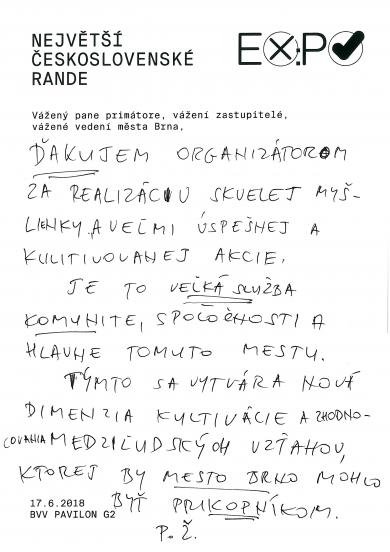 NEJVĚTŠÍ
ČESKOSLOVENSKÉ
RANDE
EX:PO
Vážený pane primátore, vážení zastupitelé,
vážené vedení města Brna,
ĎAKUJEM ORGANIZÁTOROM
ZA REALIZÁCIU SKVELEJ MYŠ-
LIENKY A VEĽMI ÚSPEŠNEJ A
KULITIVOVANEJ AKCIE.
JE TO VEĽKÁ SLUŽBA
KOMUNITE, SPOLOČNOSTI A
HLAVNE TOMUTO MESTU.
TÝMTO SA VYTVÁRA NOVÁ
DIMENZIA KULTIVÁCIE A ZHODNO-
COVANIA MEDZIĽUDSKÝCH VZŤAHOV,
KTOREJ BY MESTO BRNO MOHLO
BYŤ PRIKOPNÍKOM.
17.6.2018
BVV PAVILON G2
P. Ž.